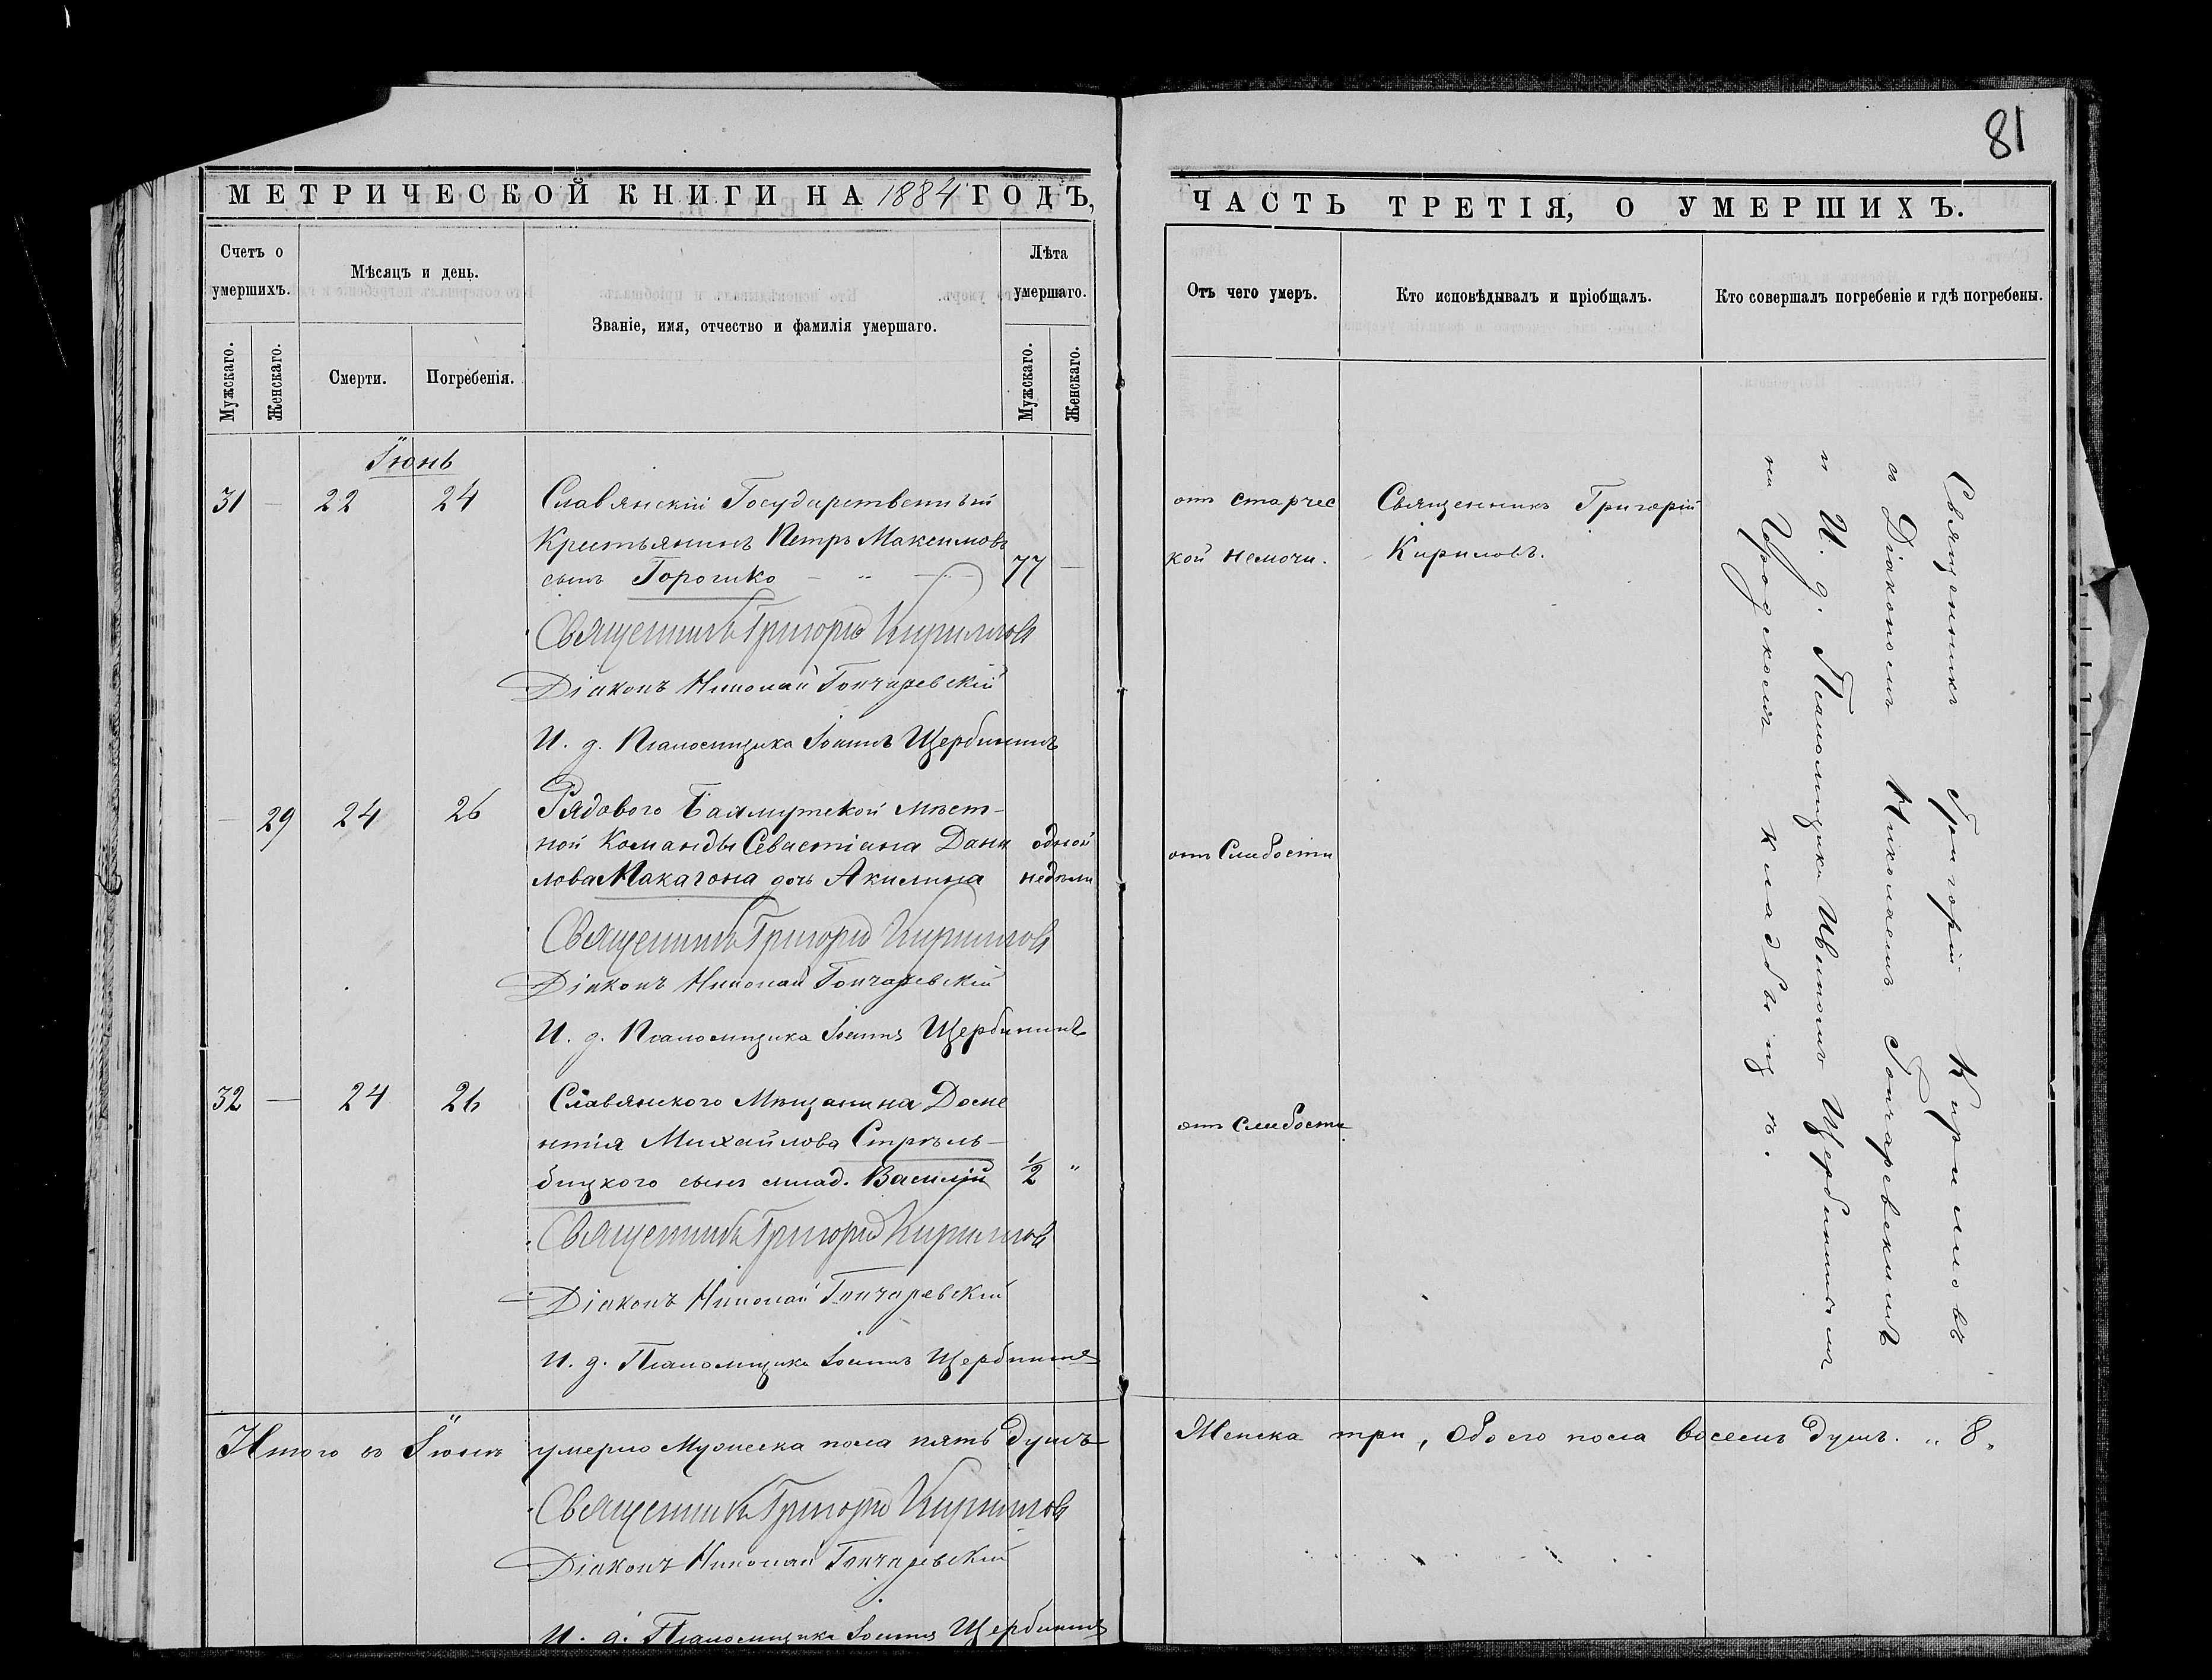 81
МЕТРИЧЕСКОЙ КНИГИ НА 1884 ГОДЪ,
Счетъ о умершихъ.
Мужскаго.
Женскаго.
Мѣсяцъ и день.
Смерти.
Погребенія.
Званіе, имя, отчество и фамилія умершаго.
Лѣта умершаго.
Мужскаго.
Женскаго.
Іюнь
31 — 22 24
Славянскій Государственный
Крестьянинъ Петръ Максимовъ
сынъ — „ — 77 —
Священникъ Григорій Кирилловъ
Діаконъ Николай Гончаревскій
И. д. Псаломщика Іоаннъ Щербининъ
— 29 24 26
Рядового Бахмутской мѣст-
ной Команды Севастіана Дани одной
лова Макагона дочь Акилина недѣли
Священникъ Григорій Кирилловъ
Діаконъ Николай Гончаревскій
И. д. Псаломщика Іоаннъ Щербининъ
32 — 24 26
Славянского Мѣщанина
Михайлова Стрѣль-
бицкого сынъ млад. Василій 1/2 „
Священникъ Григорій Кирилловъ
Діаконъ Николай Гончаревскій
И. д. Псаломщика Іоаннъ Щербининъ
Итого въ Іюнѣ умерло Мужеска пола пять душъ
Священникъ Григорій Кирилловъ
Діаконъ Николай Гончаревскій
И. д. Псаломщика Іоаннъ Щербининъ
ЧАСТЬ ТРЕТІЯ, О УМЕРШИХЪ.
Отъ чего умеръ.
Кто исповѣдывалъ и пріобщалъ.
Кто совершалъ погребеніе и гдѣ погребены.
отъ старчес
кой немочи.
Священникъ Григорій
Кириловъ.
отъ Слабости
отъ Слабости
Священникъ Григорій Кирилловъ
съ Діакономъ Николаемъ Гончаревскимъ
и И. д. Псаломщика Иваномъ Щербининымъ
на Городскомъ кладбищѣ.
Женска три, Обоего пола восемь душъ. „ 8 „